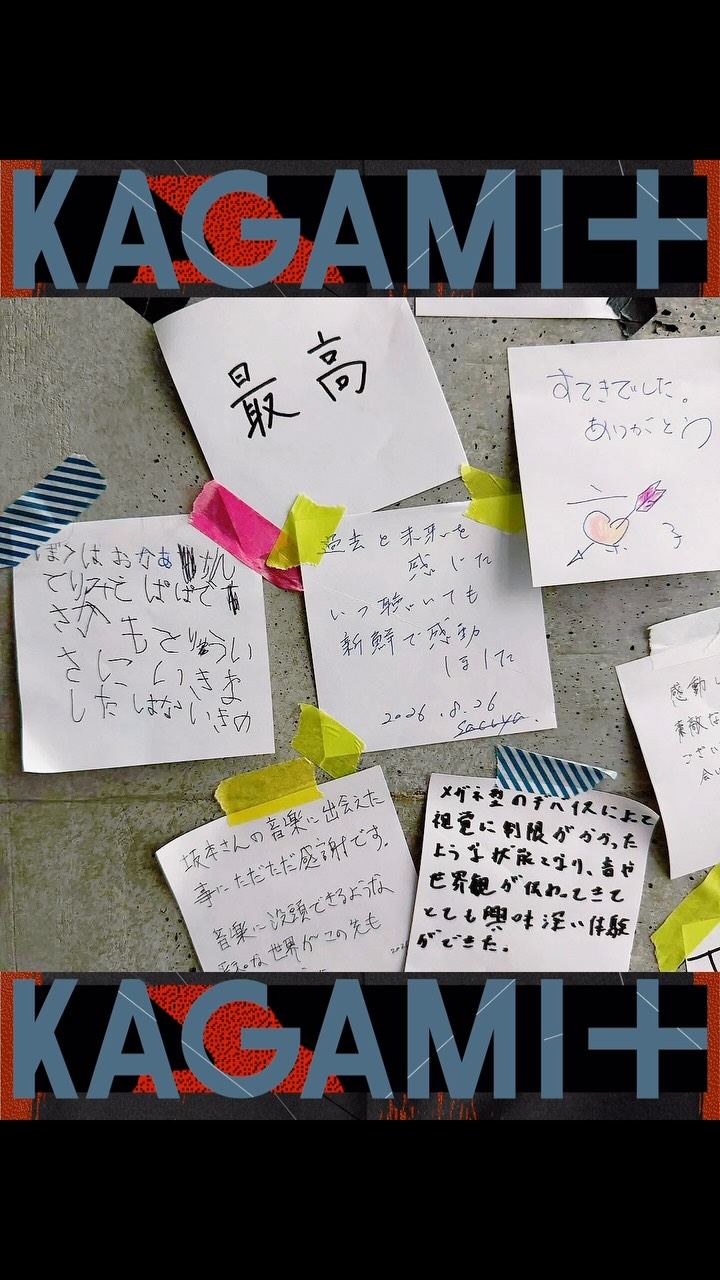 KAGAMI+
最高
すてきでした。
ありがとう
ぼくはおかあ
さが
もとりゅうい
さしこ いきま
したはないきの
過去と未来を
感じた
いつ聴いても
新鮮で感動
しました
2026.8.26
感動し
素敵な
ござい
坂本さんの音楽に出会えた
事にただただ感謝です。
音楽に没頭できるような
世界がこの先も
メガネ型のデバイスによて
視覚に制限がかかった
ような状態となり、音や
世界観が伝わってきて
とても興味深い体験
ができた。
KAGAMI+